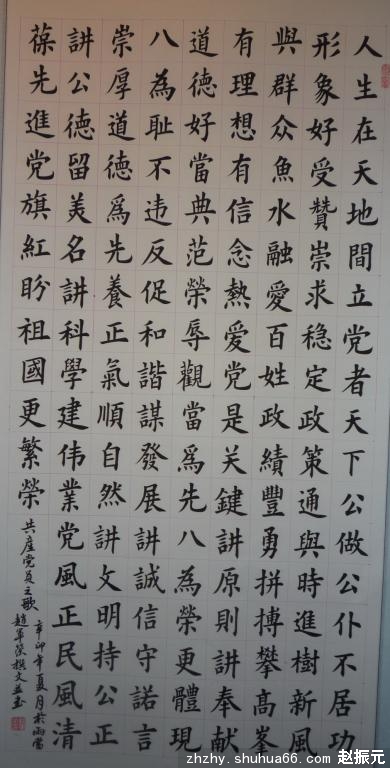 人生在天地間立党者天下公做公仆不居功
形象好受贊崇求稳定政策通與時進樹新風
與群众魚水融愛百姓政績豐勇拼搏攀高峯
有理想有信念熱愛党是关鍵講原則講奉献
道德好當典范榮辱觀當爲先八為榮更體現
八為耻不违反促和諧謀發展講誠信守諾言
崇厚道德爲先養正氣順自然講文明持公正
講公德留美名講科學建伟業党風正民風清
葆先進党旗紅盼祖國更繁榮
共産党員之歌
辛卯年夏月於雨
趙軍 撰文並書
zhzhy.shuhua66.com 赵振元